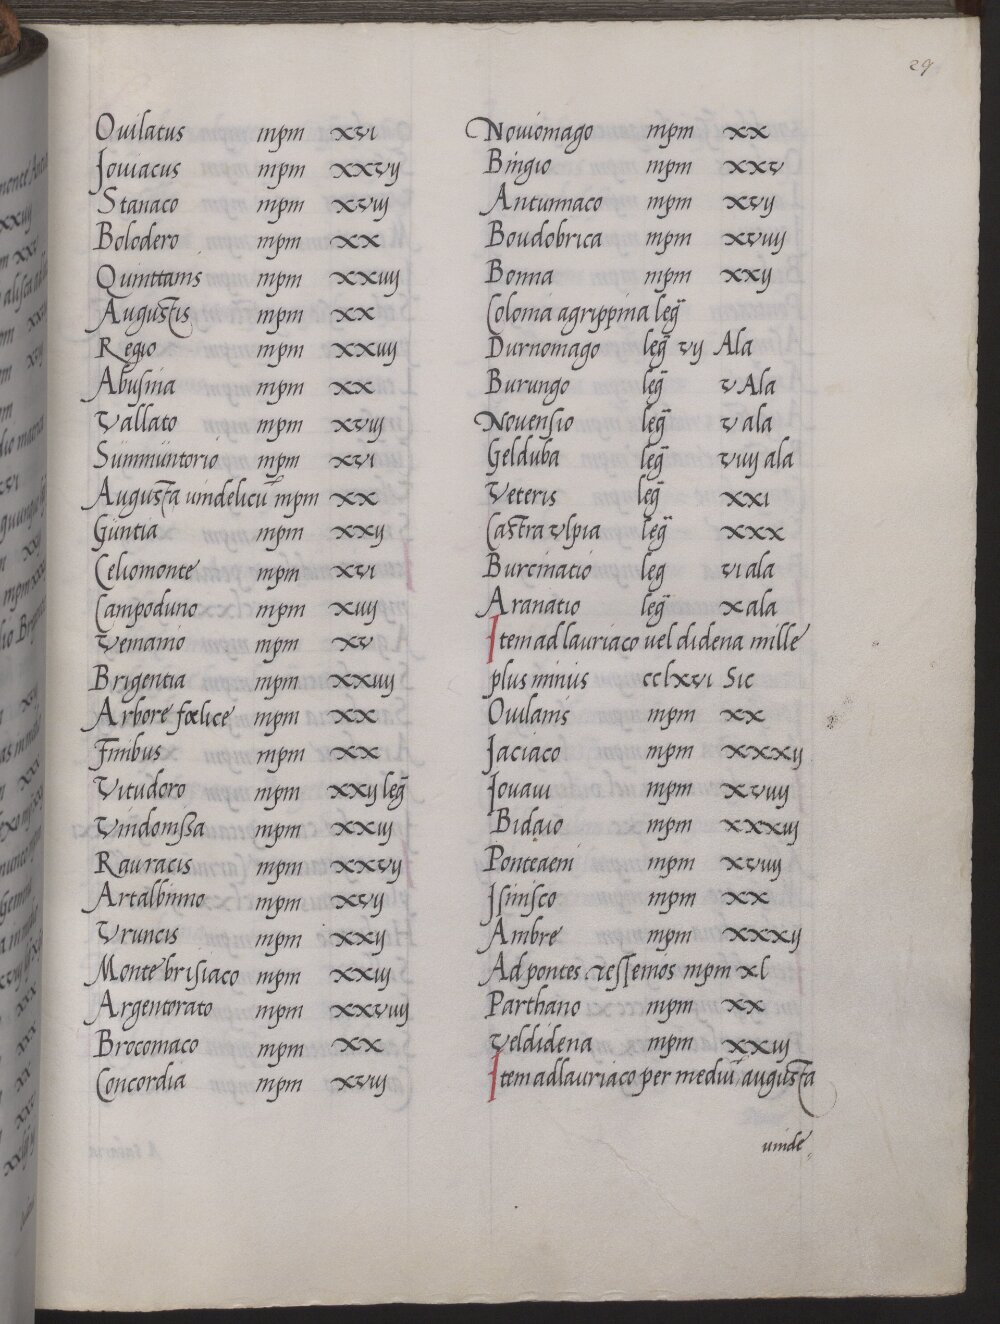 29
Ouilatus mpm xvi
Jouiacus mpm xxvij
Stanaco mpm xviij
Bolodero mpm xx
Quinttanis mpm xxiiij
Augustis mpm xx
Regio mpm xxiiij
Abusina mpm xx
Vallato mpm xviij
Summuntorio mpm xvi
Augusta uindelicū mpm xx
Guntia mpm xxij
Celiomonte mpm xvi
Campoduno mpm xiiij
Vemanio mpm xv
Brigentia mpm xxiiij
Arbore fœlice mpm xx
Finibus mpm xx
Vitudoro mpm xxij leg̃
Vindomissa mpm xxiij
Rauracis mpm xxvij
Artalbinno mpm xvij
Vruncis mpm xxij
Monte brisiaco mpm xxiij
Argentorato mpm xxviiij
Brocomaco mpm xx
Concordia mpm xviij
Nouiomago mpm xx
Bingio mpm xxv
Antunnaco mpm xvij
Boudobrica mpm xviiij
Bonna mpm xxij
Colonia agrippina leg̃
Durnomago leg̃ vij Ala
Burungo leg̃ v Ala
Nouensio leg̃ v ala
Gelduba leg̃ viiij ala
Veteris leg̃ xxi
Castra vlpia leg̃ xxx
Burcinatio leg vi ala
Aranatio leg̃ x ala
Item ad lauriaco uel didena mille
plus minus cclxvi Sic
Ouilanis mpm xx
Jaciaco mpm xxxij
Jouaui mpm xviiij
Bidaio mpm xxxiij
Ponteaeni mpm xviiij
Isinisco mpm xx
Ambre mpm xxxij
Ad pontes tessenios mpm xl
Parthano mpm xx
Veldidena mpm xxiij
Item ad lauriaco per mediū augusta
uinde